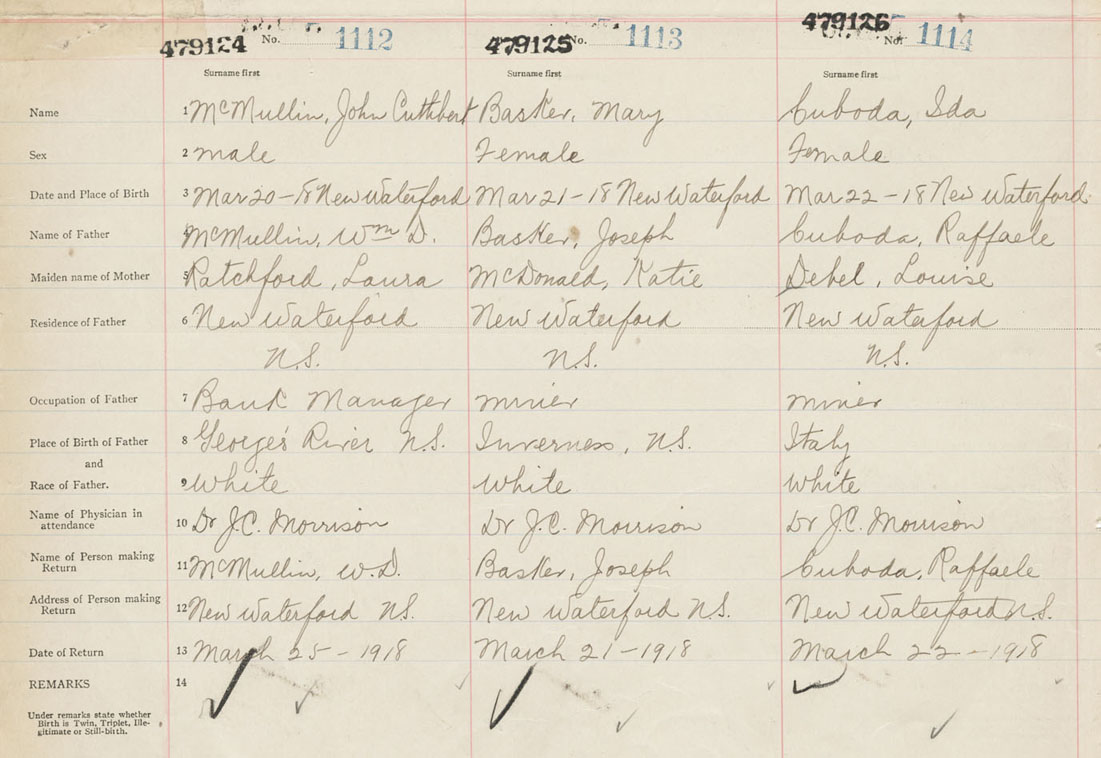 479124 No. 1112 479125 No. 1113 479126 No. 1114
Surname first Surname first Surname first
Name 1 McMullin, John Cuthbert Basker, Mary Cuboda, Ida
Sex 2 male Female Female
Date and Place of Birth 3 Mar 20-18 New Waterford Mar 21-18 New Waterford Mar 22-18 New Waterford
Name of Father 4 McMullin, Wm D. Basker, Joseph Cuboda, Raffaele
Maiden name of Mother 5 Ratchford, Laura McDonald, Katie Debel, Louise
Residence of Father 6 New Waterford New Waterford New Waterford
N.S. N.S. N.S.
Occupation of Father 7 Bank Manager miner miner
Place of Birth of Father 8 George's River N.S. Inverness, N.S. Italy
and
Race of Father. 9 White White White
Name of Physician in
attendance 10 Dr J.C. Morrison Dr J.C. Morrison Dr J.C. Morrison
Name of Person making
Return 11 McMullin, W.D. Basker, Joseph Cuboda, Raffaele
Address of Person making
Return 12 New Waterford N.S. New Waterford N.S. New Waterford N.S.
Date of Return 13 March 25-1918 March 21-1918 March 22-1918
REMARKS 14
Under remarks state whether
Birth is Twin, Triplet, Ille-
gitimate or Still-birth.